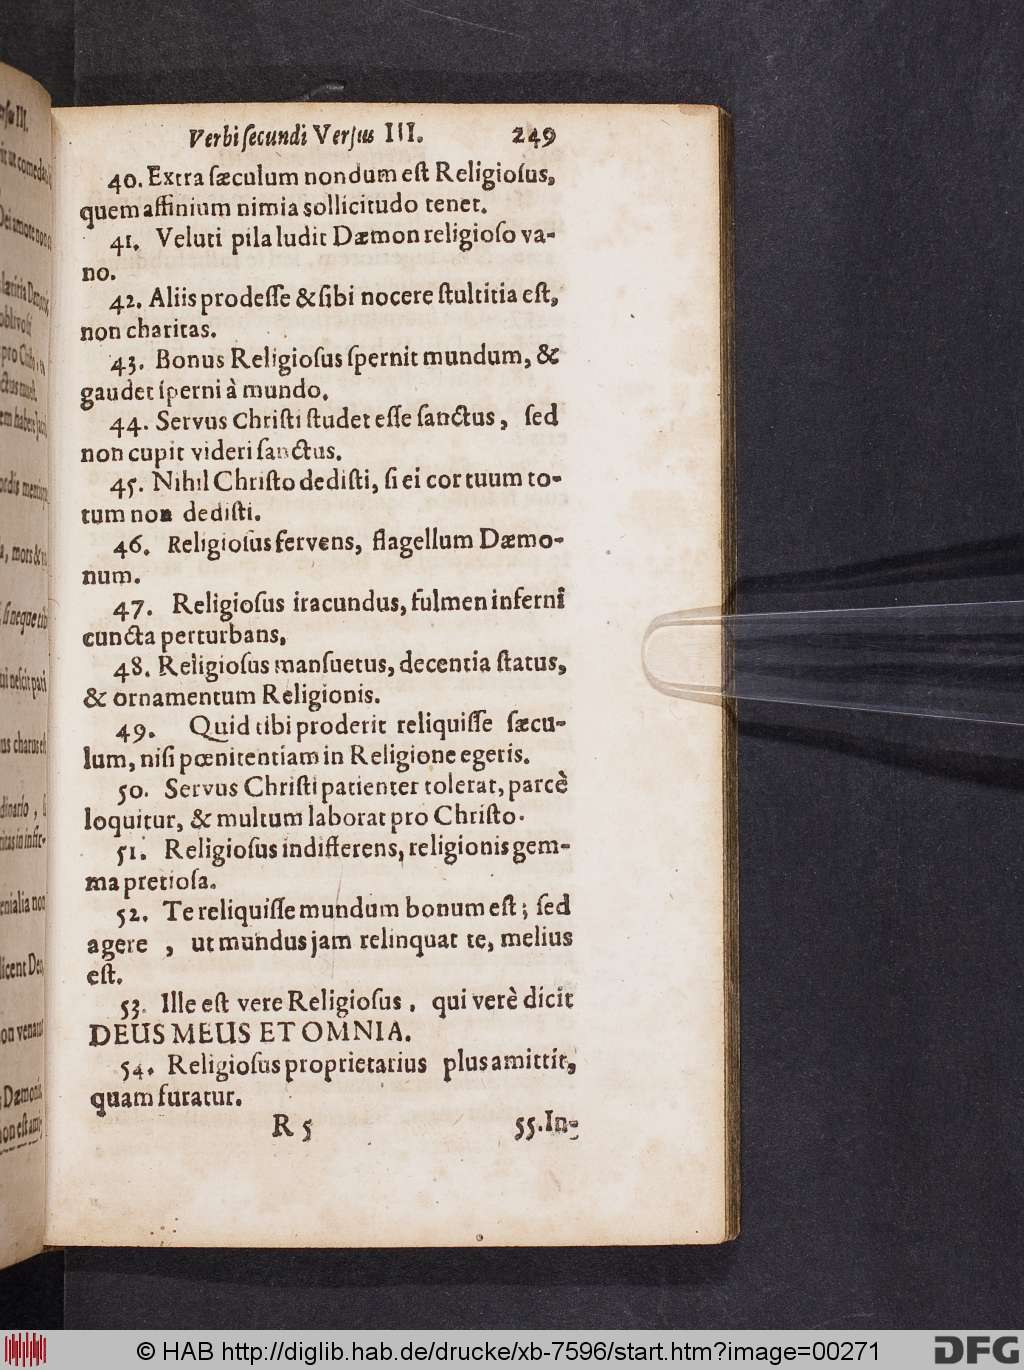 Verbi ſecundi Verſus III. 249
40. Extra ſæculum nondum eſt Religioſus,
quem affinium nimia sollicitudo tenet.
41. Veluti pila ludit Dæmon religioſo va-
no.
42. Aliis prodeſſe & ſibi nocere ſtultitia eſt,
non charitas.
43. Bonus Religioſus ſpernit mundum, &
gaudet ſperni à mundo.
44. Servus Chriſti ſtudet eſſe ſanctus, ſed
non cupit videri ſanctus.
45. Nihil Chriſto dediſti, ſi ei cor tuum to-
tum non dediſti.
46. Religioſus fervens, flagellum Dæmo-
num.
47. Religioſus iracundus, fulmen inferni
cuncta perturbans.
48. Religioſus manſuetus, decentia ſtatus,
& ornamentum Religionis.
49. Quid tibi proderit reliquiſſe ſæcu-
lum, niſi pœnitentiam in Religione egeris.
50. Servus Chriſti patienter tolerat, parcè
loquitur, & multum laborat pro Chriſto.
51. Religioſus indifferens, religionis gem-
ma pretioſa.
52. Te reliquiſſe mundum bonum eſt; ſed
agere, ut mundus jam relinquat te, melius
eſt.
53. Ille eſt vere Religioſus, qui verè dicit
DEUS MEUS ET OMNIA.
54. Religioſus proprietarius plus amittit,
quam furatur.
R 5 55. In-
© HAB http://diglib.hab.de/drucke/xb-7596/start.htm?image=00271
DFG